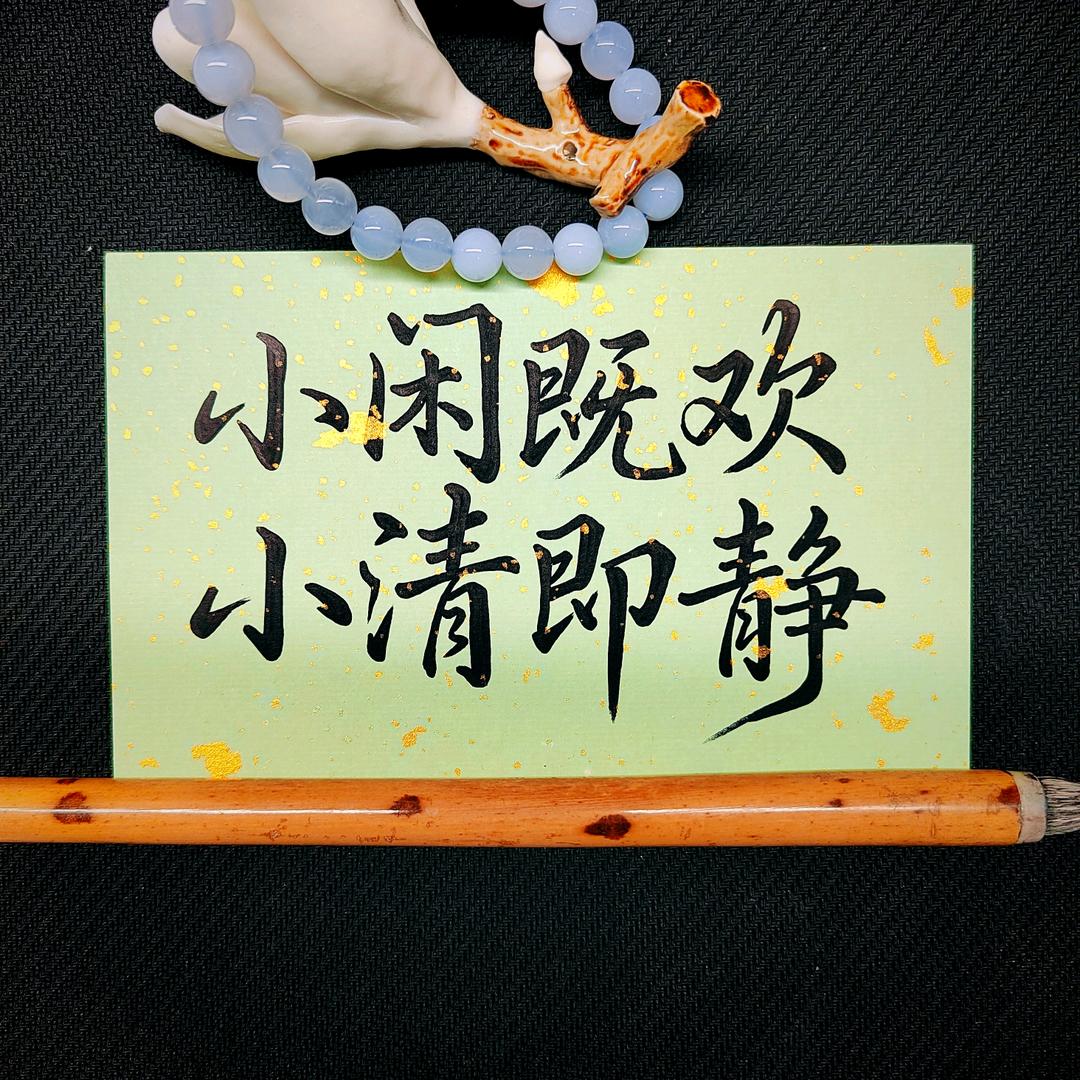 小闲既欢
小清即静